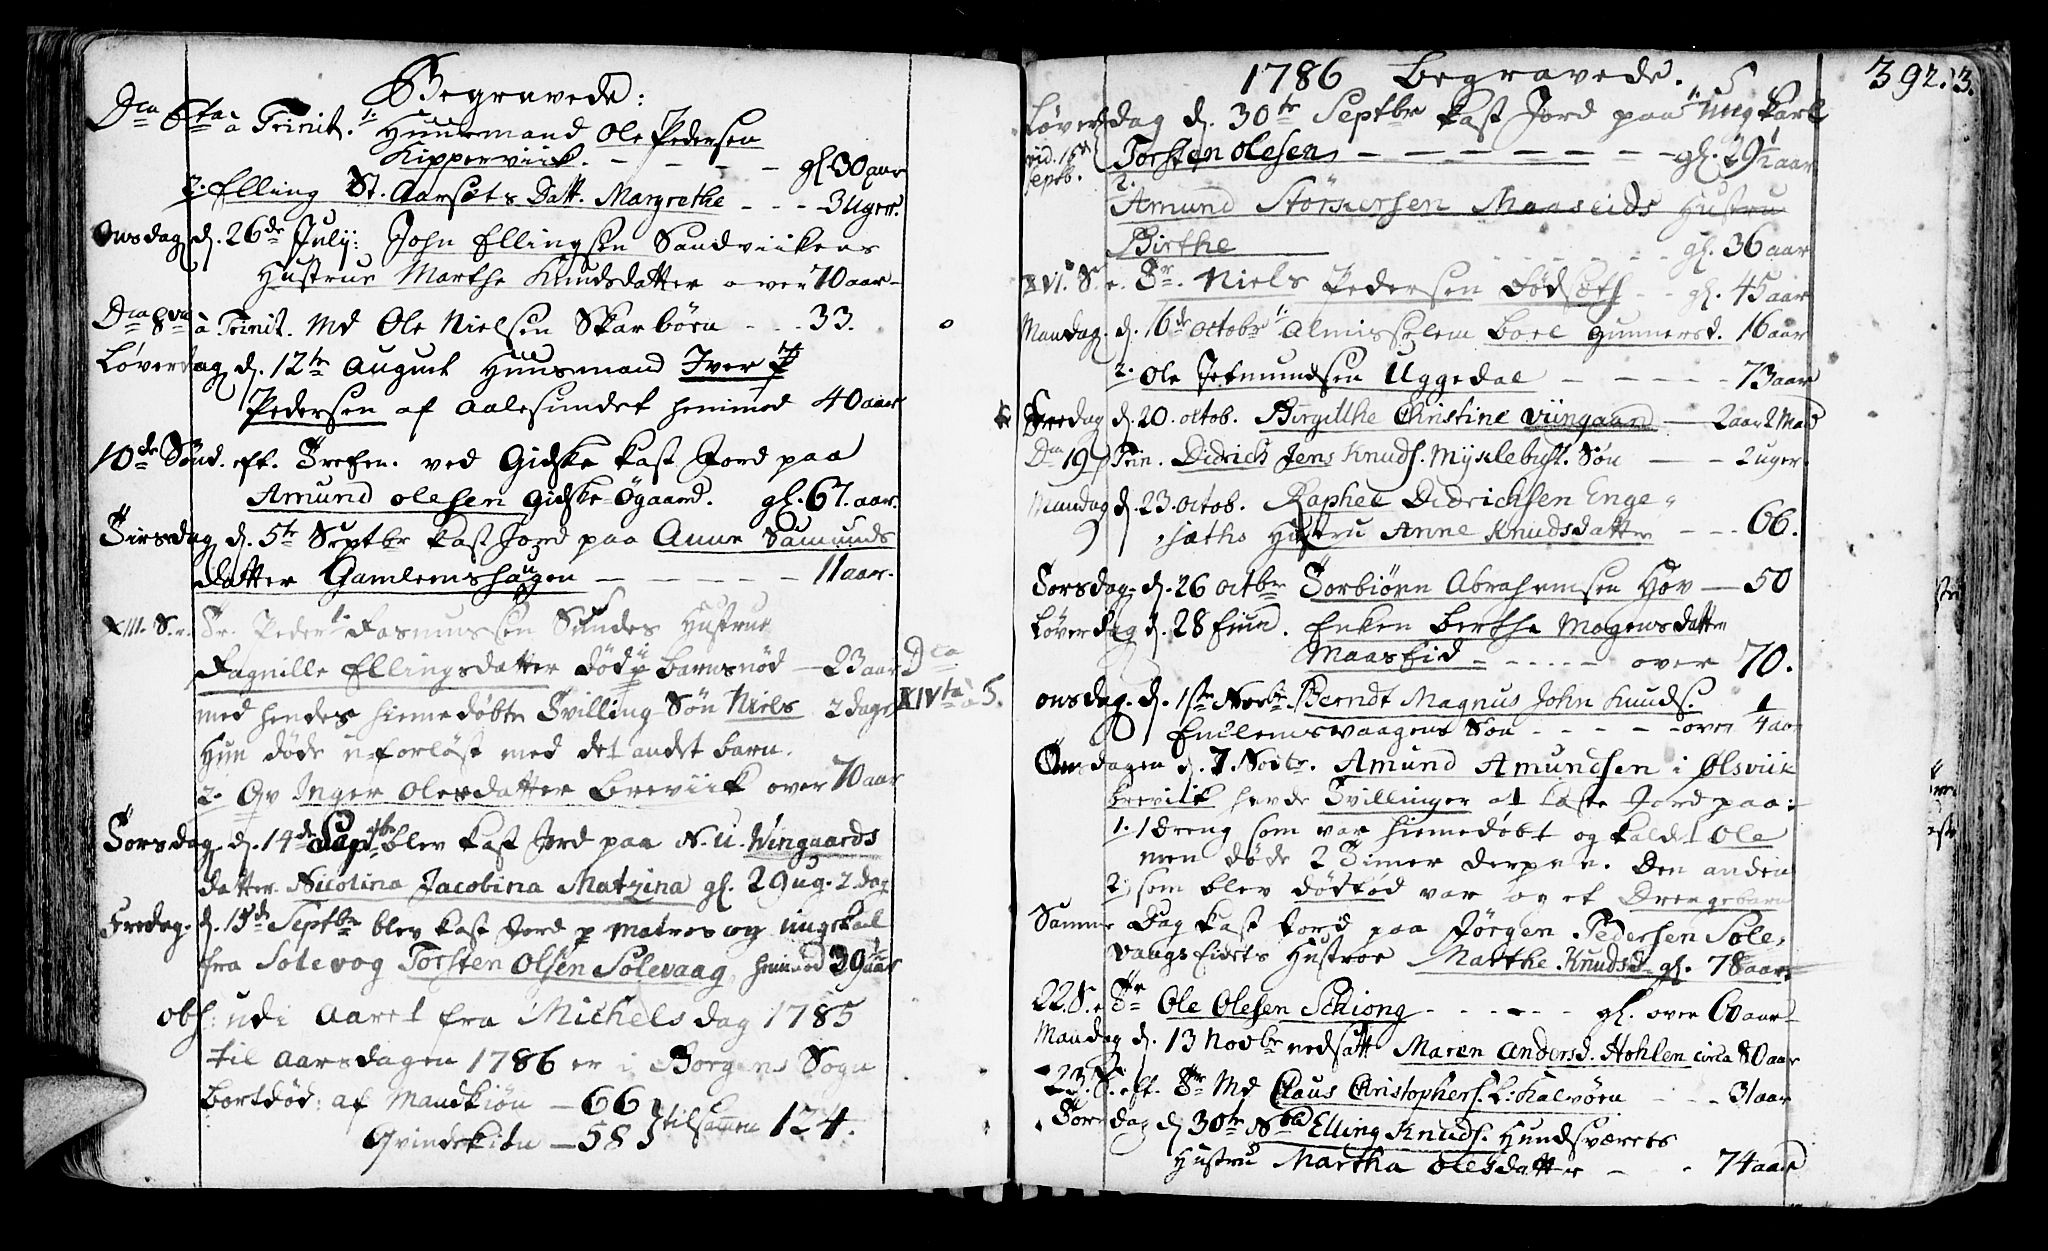 Begravede:
Dca 6ta à Trinit. 1. Huusmand Ole Pedersen
Kipperviik. - - - - gl. 30 aar
2. Elling St. Aarsets Datt. Margrethe - - - 3 Uger.
Onsdag d. 26de July: John Ellingsen Sandviikens
Hustrue Marthe Knudsdatter over 70 aar
Dca 8va à Trinit. Md Ole Nielsen Skarbörn - - - 33.
Løverdag d. 12te August Huusmand Iver
Pedersen af Aalesundet henimod 40 aar
10de Sönd. eft. Trefen. ved Gidske kast Jord paa
Amund Olesen Gidske-Ögaard. gl. 67. aar.
Tirsdag d. 5te Septbr kast Jord paa Anne Samunds
datter Gamlemshaugen - - - - - 11 aar.
XIII. S. e. Tr. Peder Rasmussen Sundes Hustrue
Ragnille Ellingsdatter död i barnsnöd - 23 aar
med hendes hiemedöbte Tvilling-Sön Niels 2 dage
Hun döde uforlöst med det andet barn.
Dca XIVta à T.
2. Qv Inger Olesdatter Breviik over 70 aar
Torsdag d. 14de Septbr blev kast Jord paa N. U. Wingaards
datter Nicolina Jacobina Matzina gl. 29 ug. 2 dag
Fredag. d. 15de Septbr blev kast Jord p matros og ungskal
fra Solevog Torsten Olsen Solevaag, henimod 39 aar
obs: udi Aaret fra Michels dag 1785
til Aarsdagen 1786 er i Borgens Sogn
bortdöd: af Mandkiön - 66
Qvindekiön - 58 } tilsammen 124.
1786 Begravede. 392.
Løverdag d. 30te Septbr kast Jord paa 1. Ungkarl
Torsten Olesen - - - - - gl. 29 1/2 aar
vid. 15de Septb.
2. Amund Störkersen Maaseids Hustru
Birthe - - - - - gl. 36 aar
XVI. S. e. Tr. Niels Pedersen Födsæth - - gl. 45 aar
Mandag. d. 16de Octobr 1. Almisselem Boel Gunnersd. 16 aar
2. Ole Jetmundsen Uggedal - - - - 73 aar
Fredag d. 20. Octob. Birgitthe Christine Viingaard - 2 aar 2 Mad
Dca 19 Trin. Didrich Jens Knuds. Myklebust. Sön - - - 2 uger.
Mandag d. 23. Octob. Raphel Didrichsen Enge-
sæths Hustru Anne Knudsdatter - - - 66.
Torsdag d. 26 Octbr Torbiörn Abrahamsen Hov - 50
Løverdag d. 28 Eiusd. Enken Berthe Mogensdatter
Maaseid - - - - - over 70.
Onsdag. d. 1ste Novbr Berndt Magnus John Knuds.
Emlemsvaagens Sön - - - - - over 1/4 aar
Onsdagen d. 7 Novbr. Amund Amundsen i Ølsviik
Breviik hende Tvillinger at kaste Jord paa:
1. 1 dreng som var hiemedöbt og kaldet Ole
men döde 2 Timer derpaa. Den anden
2. som blev dödfød var og et Drengebarn
Samme Dag kast Jord paa Jörgen Pedersen Sole-
vaagseidets Hustroe Marthe Knudsd. gl. 78 aar
22 S. e. Tr Ole Olesen Schiong - - - - - gl. over 60 aar
Mandag d. 13 Novbr nedsatt Maren Andersd. Hohlen circa 80 aar
23 S. eft. Tr Md Claus Christophers. L: Kalvörn - - - 31 aar
Torsdag d 30te Nov Elling Knuds. Hundsværets
Hustru Martha Olesdatter - - 74 aar